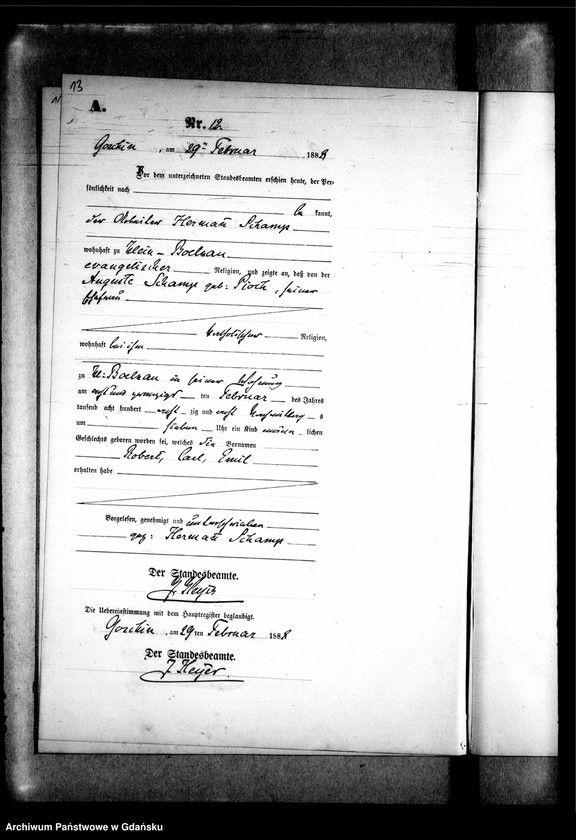 13
A.
Nr. 12.
am 29ten Februar 1888
Vor dem unterzeichneten Standesbeamten erschien heute, der Per-
sönlichkeit nach
be kannt,
der Arbeiter Hermann Schamp
wohnhaft zu Klein-Boelkau
evangelischer Religion, und zeigte an, daß von der
Auguste Schamp geb: Pioch, seiner
Ehefrau
katholischer Religion,
wohnhaft bei ihm
zu Kl: Boelkau in seiner Wohnung
am acht und zwanzigsten Februar des Jahres
tausend acht hundert acht zig und acht Nachmittags
um sieben Uhr ein Kind männlichen
Geschlechts geboren worden sei, welches die Vornamen
Robert, Carl, Emil
erhalten habe
Vorgelesen, genehmigt und unterschrieben
gez: Hermann Schamp
Der Standesbeamte.
J. Heyer
Die Uebereinstimmung mit dem Hauptregister beglaubigt.
am 29ten Februar 1888
Der Standesbeamte.
J. Heyer.
Archiwum Państwowe w Gdańsku